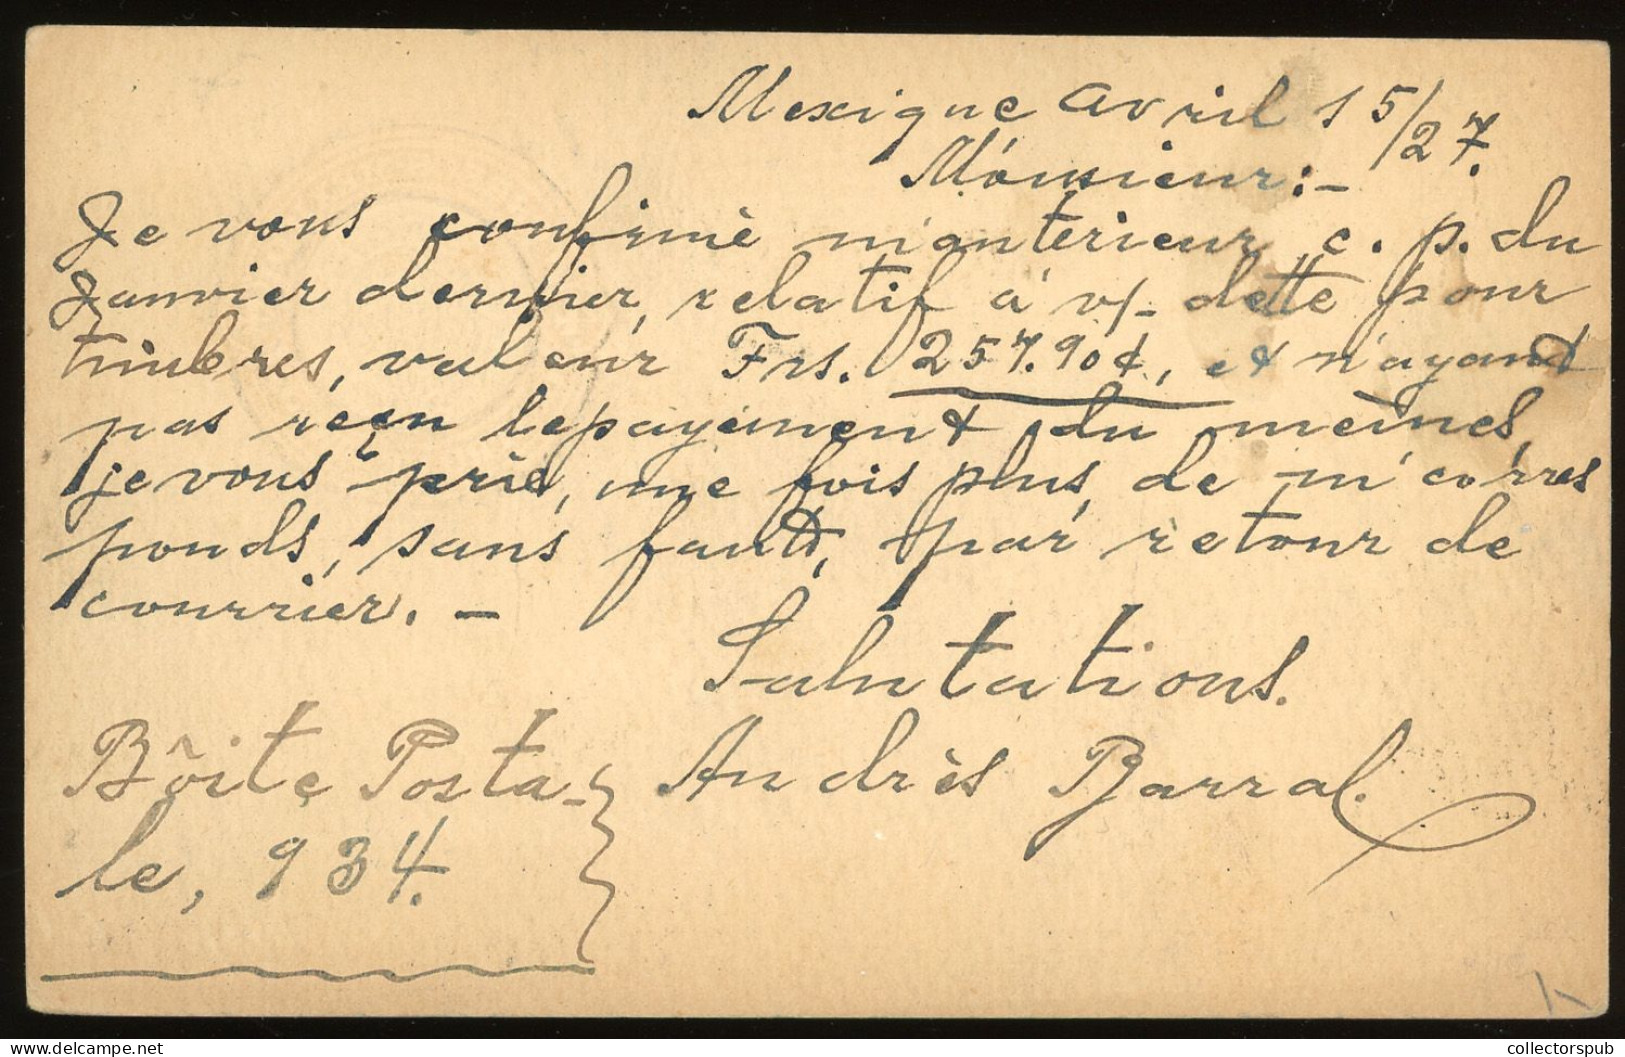 Mexique Avril 15/27.
Mónsieur:-
Je vous confirmè m'antérieur c. p. du
Janvier dernier, relatif à v/- dette pour
timbres, valeur Frs. 257.90¢, et n'ayant
pas reçu le payement du mèmes,
je vous prie, une fois plus, de m'corres
ponds, sans faute, par retour de
courrier. -
Salutations.
Bôite Posta- Andrès Barral.
le, 934.
collectorspub